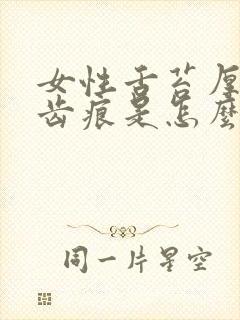 女性舌苔厚
齿痕是怎麼
同一片星空